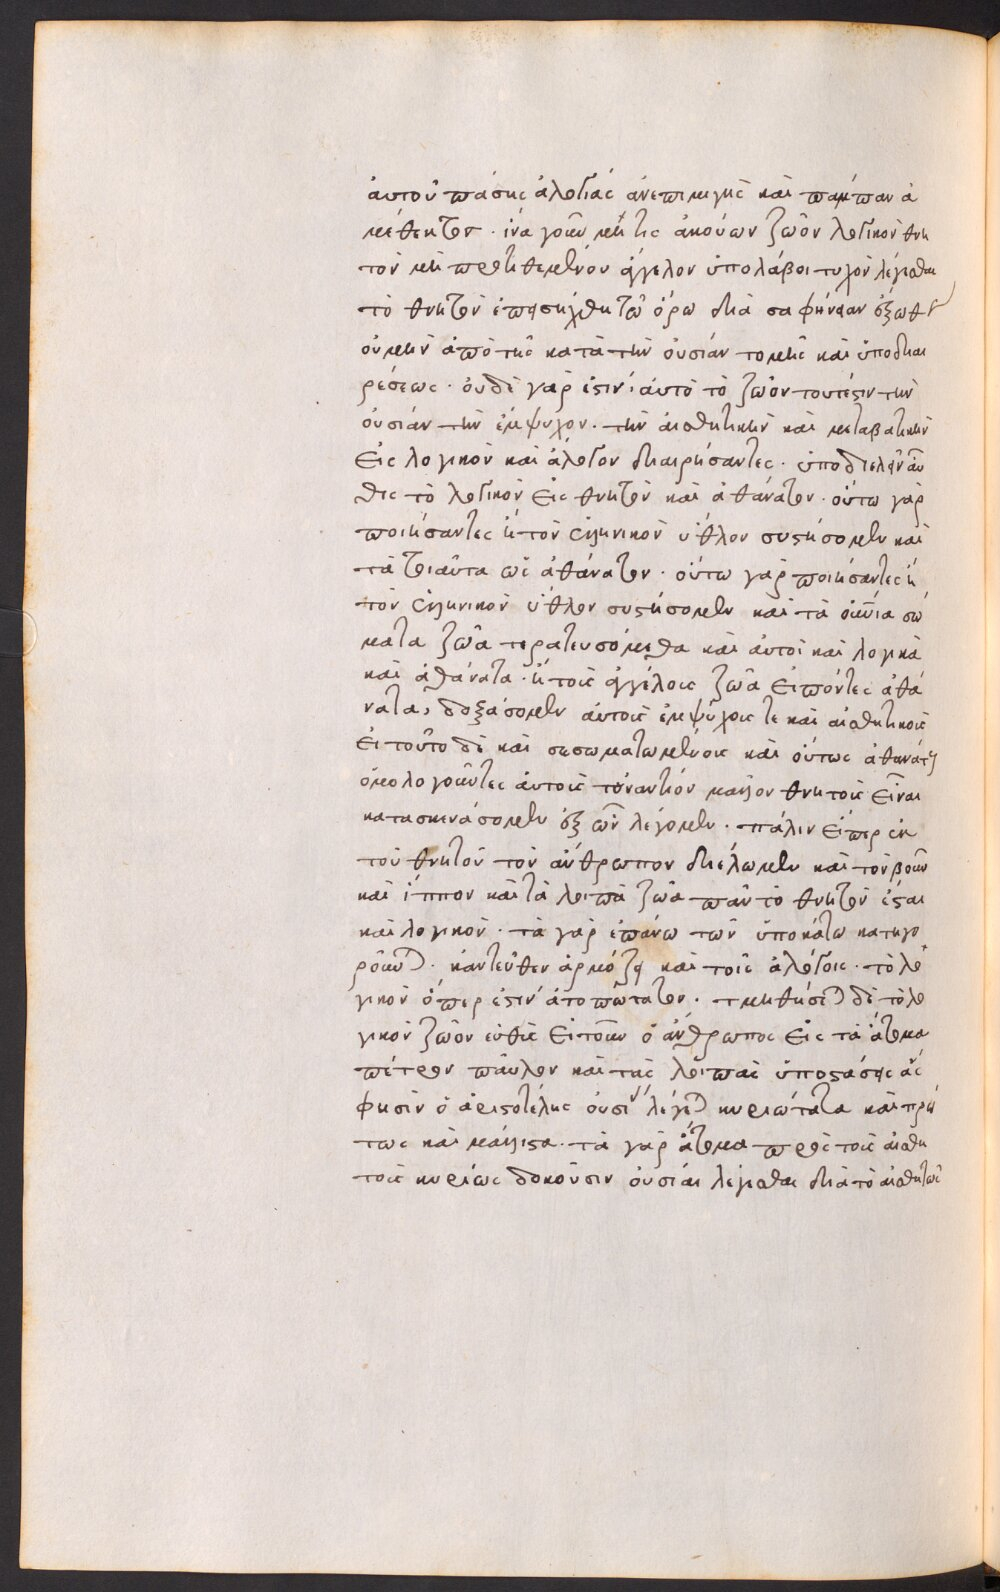 ἀυτοῦ πάσης ἀλογίας ἀνεπιμιγὴς καὶ παμπαν ἀ
μέθεκτον · ἵνα γοῦν μή τις ἀκούων ζῶον λογικὸν θνη
τὸν μὴ προςτιθεμένου ἄγγελον ὑπολάβοι τυχὸν λέγεσθαι
τὸ θνητὸν ἐπεσηχθη τῶ ὅρω διὰ σαφήνειαν ἔξωθεν
οὐ μὴν ἀπὸ τῆς κατὰ τὴν οὐσίαν τομῆς καὶ ὑποδιαι
ρέσεως · ὀυδὲ γὰρ ἐστὶν ἀυτὸ τὸ ζῶον τουτέστιν τὴν
ὀυσίαν τὴν ἔμψυχον · τὴν αἰσθητικὴν καὶ μεταβατικὴν
εἰς λογικὸν καὶ ἄλογον διαιρήσαντες · ὑποδιελεῖν αὖ
θις τὸ λογικὸν εἰς θνητὸν καὶ ἀθάνατον · οὕτω γὰρ
ποιήσαντες ἢ τὸν ἑλληνικὸν ὕθλον συστήσομεν καὶ
τὰ τοιαῦτα ὡς ἀθάνατον · οὕτω γὰρ ποιήσαντες ἢ
τὸν ἑλληνικὸν ὕθλον συστήσομεν καὶ τὰ οὐράνια σώ
ματα ζῶα τερατευσόμεθα καὶ αὐτοὶ καὶ λογικὰ
καὶ ἀθάνατα · ἢ τοὺς ἀγγέλους ζῶα εἰπόντες ἀθά
νατα, δοξάσομεν ἀυτοὺς ἐμψύχους τε καὶ αἰσθητικοὺς
εἰ τοῦτο δὲ καὶ σεσωματωμένους καὶ οὕτως ἀθανάτους
ὁμολογοῦντες ἀυτοὺς τοὐναντίον μᾶλλον θνητοὺς εἶναι
κατασκευάσομεν ἐξ ὧν λέγομεν · πάλιν εἴπερ ἐκ
τοῦ θνητοῦ τὸν ἄνθρωπον διέλωμεν καὶ τὸν βοῦν
καὶ ἵππον καὶ τὰ λοιπὰ ζῶα πᾶν τὸ θνητὸν ἔσται
καὶ λογικὸν · τὰ γὰρ ἐπάνω τῶν ὑποκάτω κατηγο
ροῦνται · κἀντεῦθεν ἁρμόζει καὶ τοῖς ἀλόγοις · τὸ λο
γικὸν ὅπερ ἐστὶν ἀτοπώτατον · τμηθήσεται δὲ τὸ λο
γικὸν ζῶον εὐθὺς εἴτουν ὁ ἄνθρωπος εἰς τὰ ἄτομα
πέτρον παῦλον καὶ τὰς λοιπὰς ὑποστάσεις ἃς
φησὶν ὁ ἀριστοτέλης οὐσίας λέγεσθαι κυριώτατα καὶ πρώ
τως καὶ μάλιστα · τὰ γὰρ ἄτομα πρὸς τοῖς αἰσθη
τοῖς κυρίως δοκοῦσιν οὐσίαι λέγεσθαι διὰ τὸ αἰσθητῶς